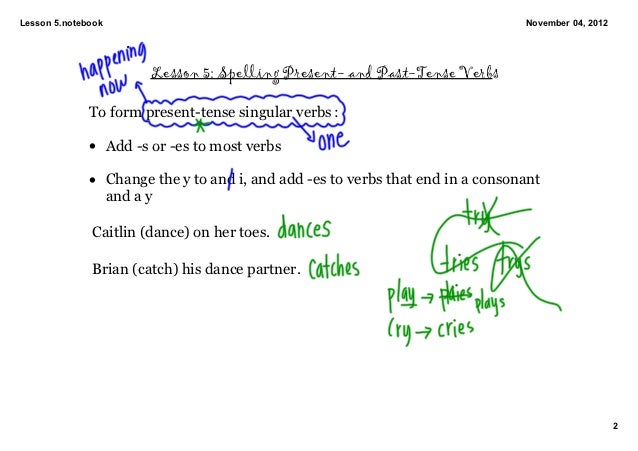 Lesson 5.notebook
November 04, 2012
happening
now
Lesson 5: Spelling Present- and Past-Tense Verbs
To form present-tense singular verbs :
one
• Add -s or -es to most verbs
• Change the y to and i, and add -es to verbs that end in a consonant
and a y
try
Caitlin (dance) on her toes. dances
tries trys
Brian (catch) his dance partner. catches
play → plaies plays
Cry → cries
2